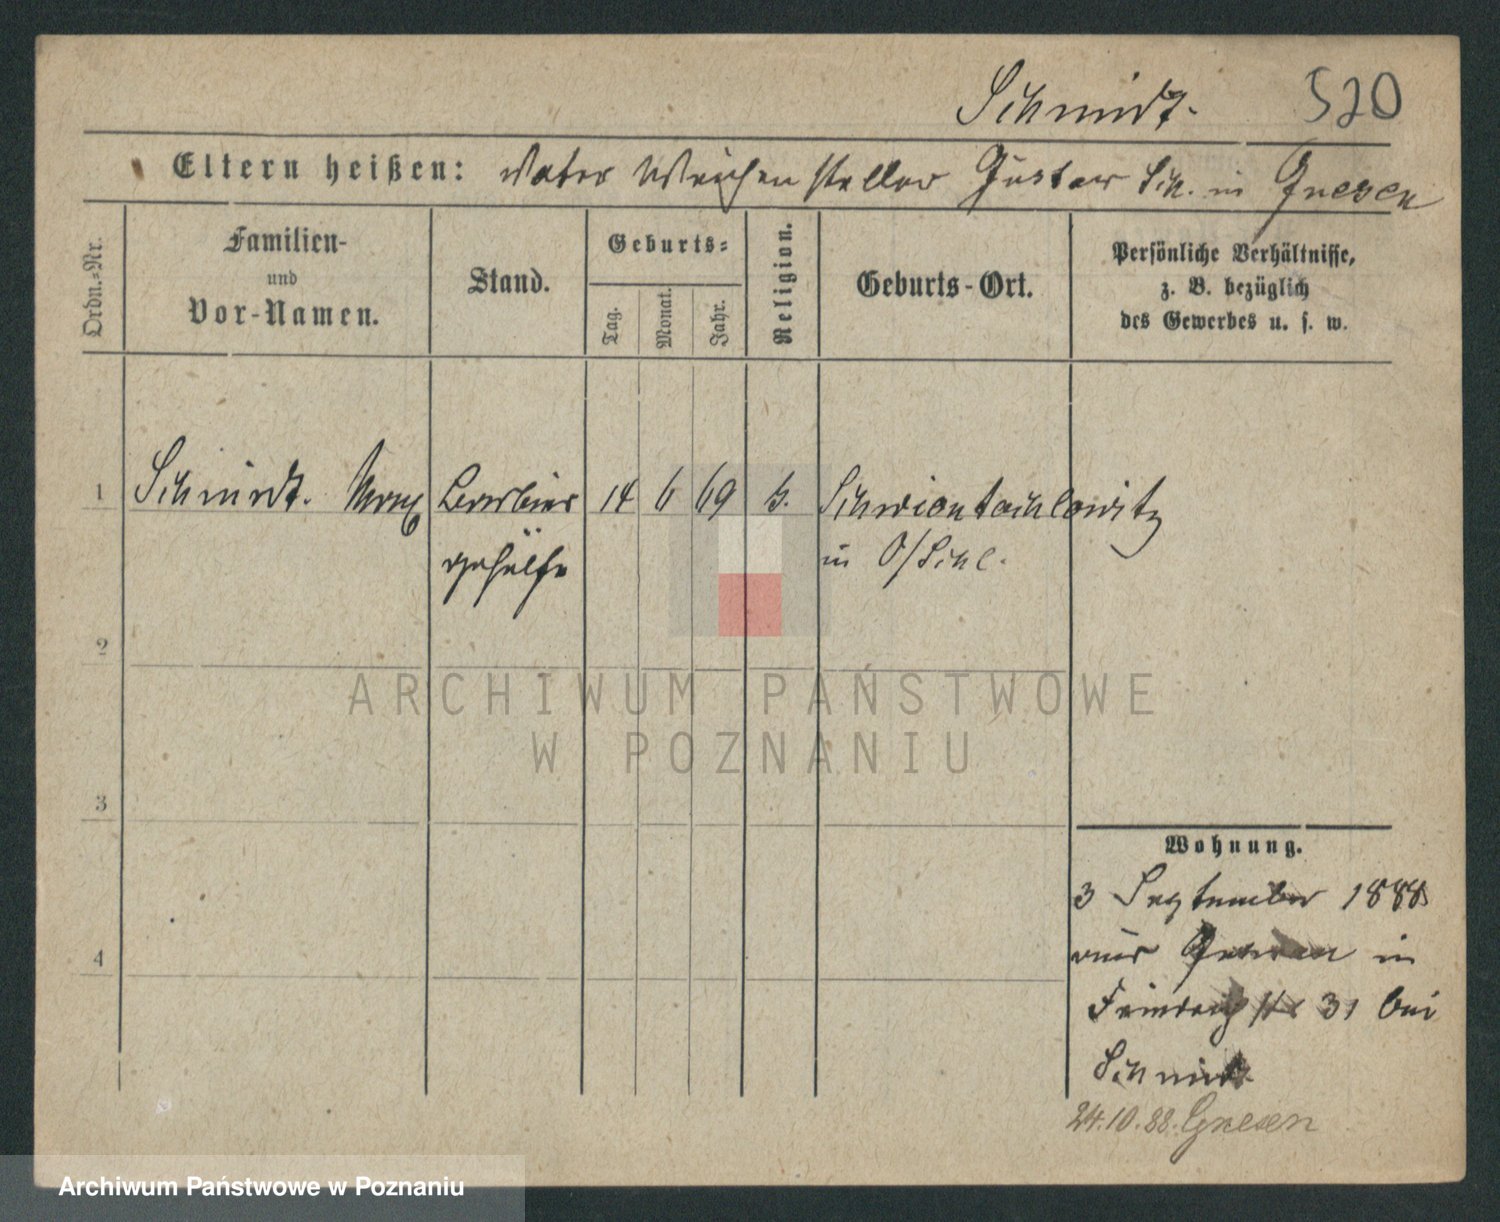 Schmidt. 520
Eltern heißen: Vater Weichensteller Gustav Sch. in Gnesen
Ordn.-Nr.
Familien-
und
Vor-Namen.
Stand.
Geburts-
Tag.
Monat.
Jahr.
Religion.
Geburts-Ort.
Persönliche Verhältnisse,
z. B. bezüglich
des Gewerbes u. s. w.
1 Schmidt. Max Barbier 14 6 69 k. Schwientochlowitz
gehülfe in O/Schl.
2
ARCHIWUM PAŃSTWOWE
W POZNANIU
3
Wohnung.
3 September 1888
aus Gnesen in
4
Friedrichstr 31 bei
Schmidt
24.10.88. Gnesen
Archiwum Państwowe w Poznaniu